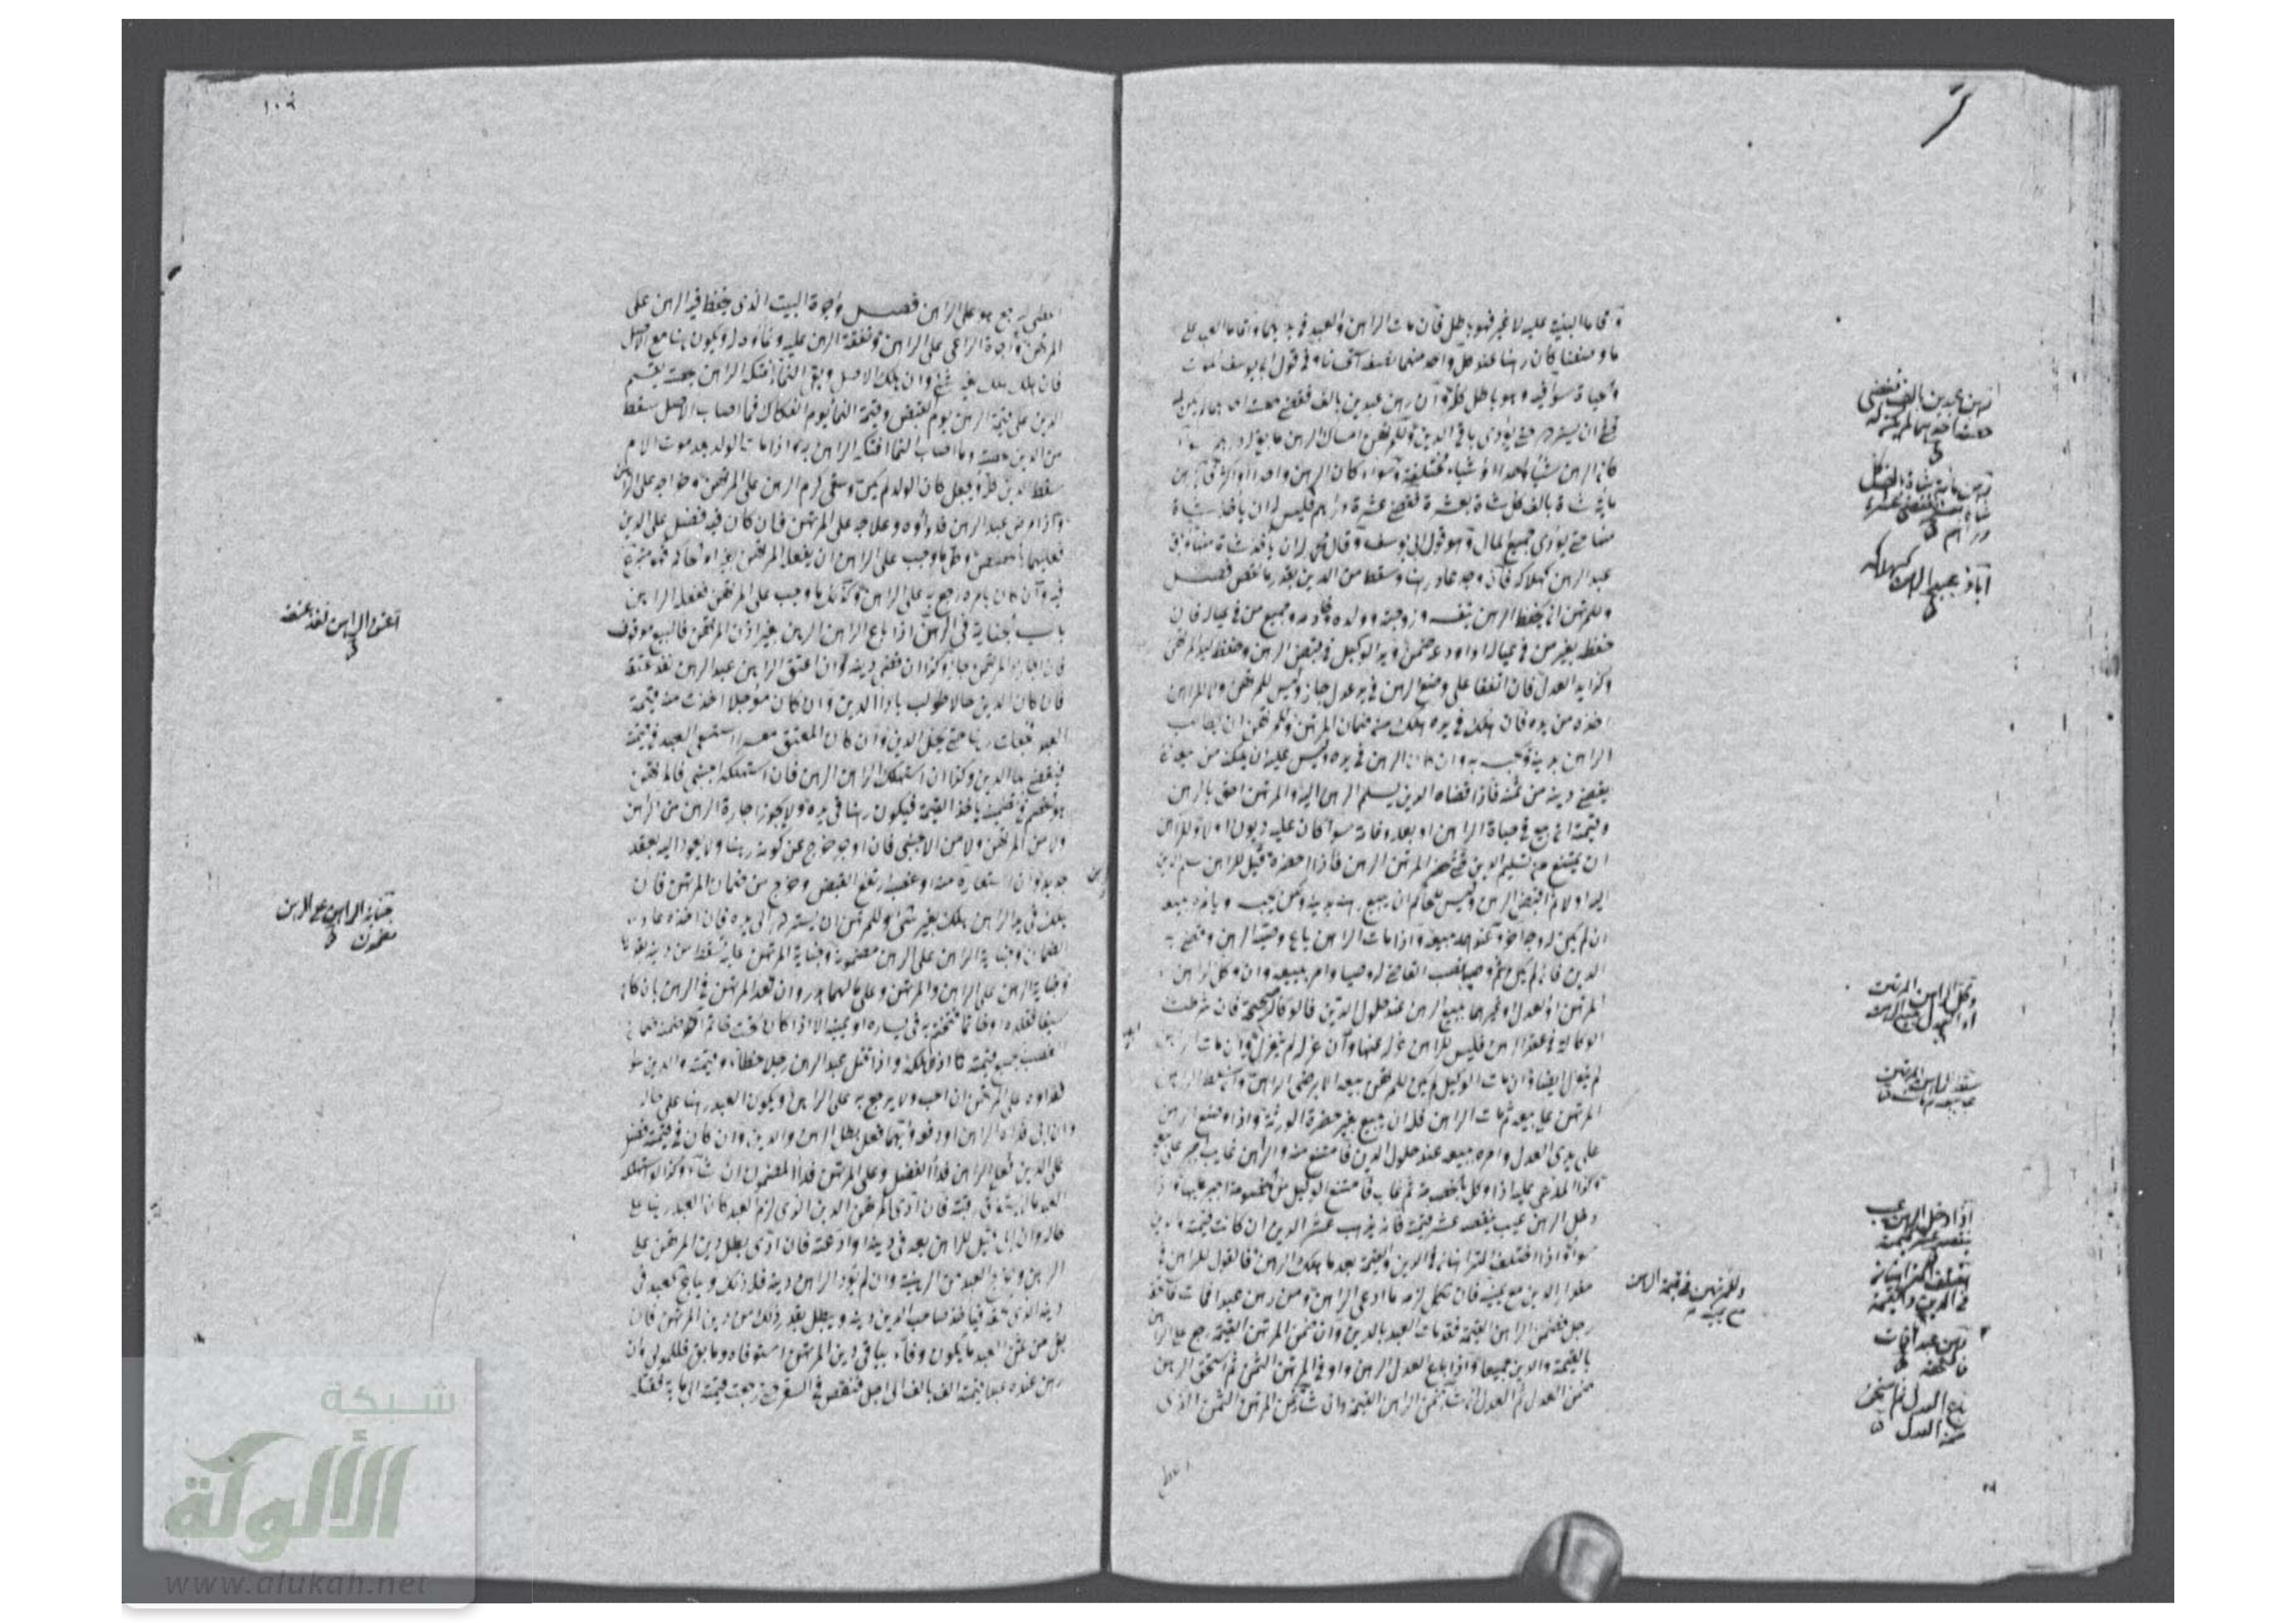 واقاما البينة عليه لا غير فهو باطل فان مات الراهن والعبد في يديهما واقاما البينة على
ما وصفنا كان رهنا عند كل واحد منهما نصفه استحسانا وفي قول ابي يوسف الموت
والحياة سواء فيه وهو باطل فان رهن عبدين بالف فقضى حصة احدهما لم يكن له
قبضه ان يسترده حتى يؤدي باقي الدين وللمرتهن امساك الرهن ما بقي له درهم سواء
كان الرهن شيئا واحدا او اشياء مختلفة وسواء كان الرهن واحدا او اكثر فان رهن
مائة شاة بالف كل شاة بعشرة فقضى عشرة دراهم فليس له ان يأخذ شاة
منها حتى يؤدي جميع المال وهو قول ابي يوسف وقال محمد له ان يأخذ شاة منها وابق
عبد الرهن كهلاكه فان وجد عاد رهنا وسقط من الدين بقدر ما نقص فصل
وللمرتهن ان يحفظ الرهن بنفسه وزوجته وولده وخادمه وجميع من في عياله فان
حفظه بغير من في عياله او اودعه ضمن ويد الوكيل في قبض الرهن وحفظه كيد المرتهن
وكذا يد العدل فان اتفقا على وضع الرهن في يد عدل جاز وليس للمرتهن ولا للراهن
اخذه من يده فان هلك في يده هلك من ضمان المرتهن وللمرتهن ان يطالب
الراهن بدينه ويحبسه به وان كان الرهن في يده وليس عليه ان يمكنه من بيعه حتى
يقضي دينه من ثمنه فاذا قضاه الدين يسلم الرهن اليه والمرتهن احق بالرهن
وقيمته ان بيع في حياة الراهن او بعد وفاته سواء كان عليه ديون او لا وللراهن
ان يمتنع من تسليم الدين حتى يحضر المرتهن الرهن فاذا احضره قيل للراهن سلم الدين
اليه اولا ثم اقبض الرهن وليس للحاكم ان يبيع رهنه بدينه ولكن يحبسه ويأمره ببيعه
ان لم يكن له وجه آخر وعندهما يبيعه واذا مات الراهن باع وصيه الرهن وقضى به
الدين فان لم يكن ثم وصي نصب القاضي له وصيا وامره ببيعه وان وكل الراهن
المرتهن او العدل او غيرهما ببيع الرهن عند حلول الدين فالوكالة صحيحة فان شرطت
الوكالة في عقد الرهن فليس للراهن عزله عنها وان عزله لم ينعزل وان مات الراهن
لم ينعزل ايضا وان مات الوكيل لم يكن للمرتهن بيعه الا برضى الراهن وان سلط الراهن
المرتهن على بيعه ثم مات الراهن فله ان يبيع بغير حضرة الورثة واذا وضع الرهن
على يدي العدل وامره ببيعه عند حلول الدين فامتنع منه والراهن غايب اجبر على بيعه
وكذا المدعى عليه اذا وكل بالخصومة ثم غاب فامتنع الوكيل من الخصومة اجبر عليها
دخل الرهن عيب ينقصه عشر قيمته فانه يذهب عشر الدين ان كانت قيمته والدين
سواء اذا اختلف المتراهنان في الدين والقيمة بعد ما هلك الرهن فالقول للراهن في
مقدار الدين مع يمينه فان نكل لزمه ما ادعى الراهن ومن رهن عبدا فمات فاستحقه
رجل فضمن الراهن القيمة فقد مات العبد بالدين وان ضمن المرتهن القيمة رجع على الراهن
بالقيمة والدين جميعا واذا باع العدل الرهن واوفى المرتهن الثمن ثم استحق الرهن
ضمن العدل ثم العدل ان شاء ضمن الراهن القيمة وان شاء ضمن المرتهن الثمن الذي
اعطى
رهن عبدين بالف فقضى
حصة احدهما لم يكن له
رهن مائة شاة بالف كل
شاة بعشرة فقضى عشرة
دراهم
اباق عبد الرهن كهلاكه
وكل الراهن المرتهن
او العدل ببيع الرهن
سلط الراهن المرتهن
على بيعه ثم مات
اذا دخل الرهن عيب
ينقصه عشر قيمته
اختلف المتراهنان
في الدين والقيمة
وللمرتهن في قيمة الرهن
مع يمينه
رهن عبدا فمات
فاستحقه
باع العدل ثم استحق
ضمن العدل
اعطى يرجع هو على الراهن فصل واجرة البيت الذي يحفظ فيه الرهن على
المرتهن واجرة الراعي على الراهن ونفقة الرهن عليه ونماؤه له ويكون رهنا مع الاصل
فان هلك هلك بغير شيء وان هلك الاصل وبقي النماء افتكه الراهن بحصته يقسم
الدين على قيمة الرهن يوم القبض وقيمة النماء يوم الفكاك فما اصاب الاصل سقط
من الدين بحصته وما اصاب النماء افتكه الراهن به واذا مات الولد بعد موت الام
سقط الدين كله ويجعل كان الولد لم يكن وسقي كرم الرهن على المرتهن وخراجه على الراهن
واذا مرض عبد الرهن فدواؤه وعلاجه على المرتهن فان كان فيه فضل على الدين
فعليهما بالحصص وكل ما وجب على الراهن ان يفعل المرتهن بغير امره فهو متبرع
فيه وان كان بامره رجع به على الراهن وكذلك ما وجب على المرتهن ففعله الراهن
باب الجناية في الرهن اذا باع الراهن الرهن بغير اذن المرتهن فالبيع موقوف
فان اجازه المرتهن جاز وكذا ان قضى دينه وان اعتق الراهن عبد الرهن نفذ عتقه
فان كان الدين حالا طولب باداء الدين وان كان مؤجلا اخذت منه قيمة
العبد فجعلت رهنا حتى يحل الدين وان كان المعتق معسرا استسعى العبد في قيمته
فيقضى بها الدين وكذا ان استهلك الراهن الرهن فان استهلكه اجنبي فالمرتهن
هو الخصم في تضمينه يأخذ القيمة فيكون رهنا في يده ولا يجوز اجارة الرهن من الراهن
ولا من المرتهن ولا من الاجنبي فان اوجر خرج عن كونه رهنا ولا يعود اليه بعقد
جديد وان استعاره منه او غصبه ارتفع القبض وخرج من ضمان المرتهن فان
هلك في يد الراهن هلك بغير شيء وللمرتهن ان يسترده الى يده فان اخذه عاد
الضمان وجناية الراهن على الرهن مضمونة وجناية المرتهن عليه تسقط من دينه بقدرها
وجناية الرهن على الراهن والمرتهن وعلى مالهما هدر وان تعدى المرتهن في الرهن بان كان
سيفا فتقلده او خاتما فتختم به في يساره او يمينه الا اذا كان تحت خاتم آخر
الغصب بجميع قيمته واذا قتل عبد الرهن رجلا خطاء وقيمته والدين سواء
ففداؤه على المرتهن ان احب ولا يرجع به على الراهن ويكون العبد رهنا على حاله
وان ابى فداه الراهن او دفعه وايهما فعل بطل الرهن والدين وان كان في قيمته فضل
على الدين فعلى الراهن فداء الفضل وعلى المرتهن فداء المضمون ان شاء وكذا لو استهلك
العبد ما يستغرق رقبته فان ادى المرتهن الدين الذي لزم العبد كان العبد رهنا على
حاله وان ابى قيل للراهن بعه في دينه او ادعه فان ادى بطل دين المرتهن على
الرهن ويخرج العبد من الرهنية وان لم يؤد الراهن دينه فله ذلك ويباع العبد في
دينه الذي لحقه فيأخذ صاحب الدين دينه ويبطل بقدر ذلك من دين المرتهن فان
بقي من ثمن العبد ما يكون وفاء بباقي دين المرتهن استوفاه وما بقي فللمولى وان
رهن عنده عبدا قيمته الف بالف الى اجل فنقص في السعر حتى رجعت قيمته الى مائة فقتله
اعتق الراهن نفذ عتقه
جناية الراهن على الرهن
مضمونة
شبكة
الألوكة
www.alukah.net